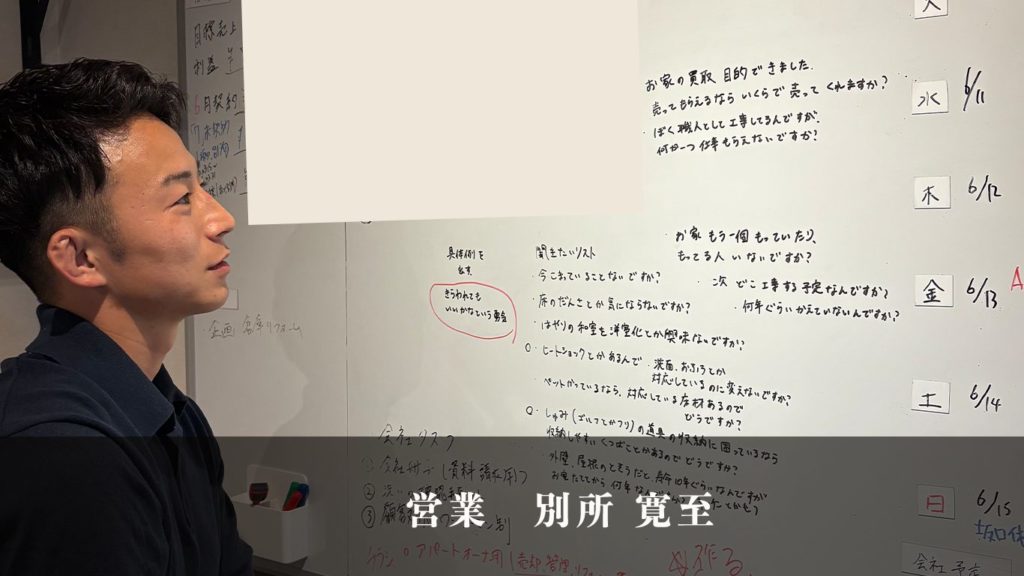 目標売上
利益
6月契約
お家の買取 目的できました。
売ってもらえるなら いくらで 売って くれますか?
・ぼく職人として工事してるんですが、
何か一つ仕事もらえないですか?
水 6/11
木 6/12
・お家 もう一個 もっていたり、
もってる人 いないですか?
・次 どこ工事する予定なんですか?
・何年ぐらいかえていないんですか?
金 6/13
具体例を
出す
きらわれても
いいかなという勇気
聞きたいリスト
・今こまっていることないですか?
・床のだんさとか気にならないですか?
・はやりの和室を洋室化とか興味ないですか?
○・ヒートショックとかあるんで、洗面、おふろとか
対応しているのに変えないですか?
・ペットかっているなら、対応している床材あるので
どうですか?
・しゅみ(ゴルフとかつり)の道具の収納に困っているなら
収納しやすい くつばことかあるのでどうですか?
・外壁、屋根のとそうだと、
土 6/14
・企画 倉庫リフォーム
会社リスク
① 会社冊子(資料請求用)
②
③
日 6/15
会社予定
作る
営業 別所 寛至